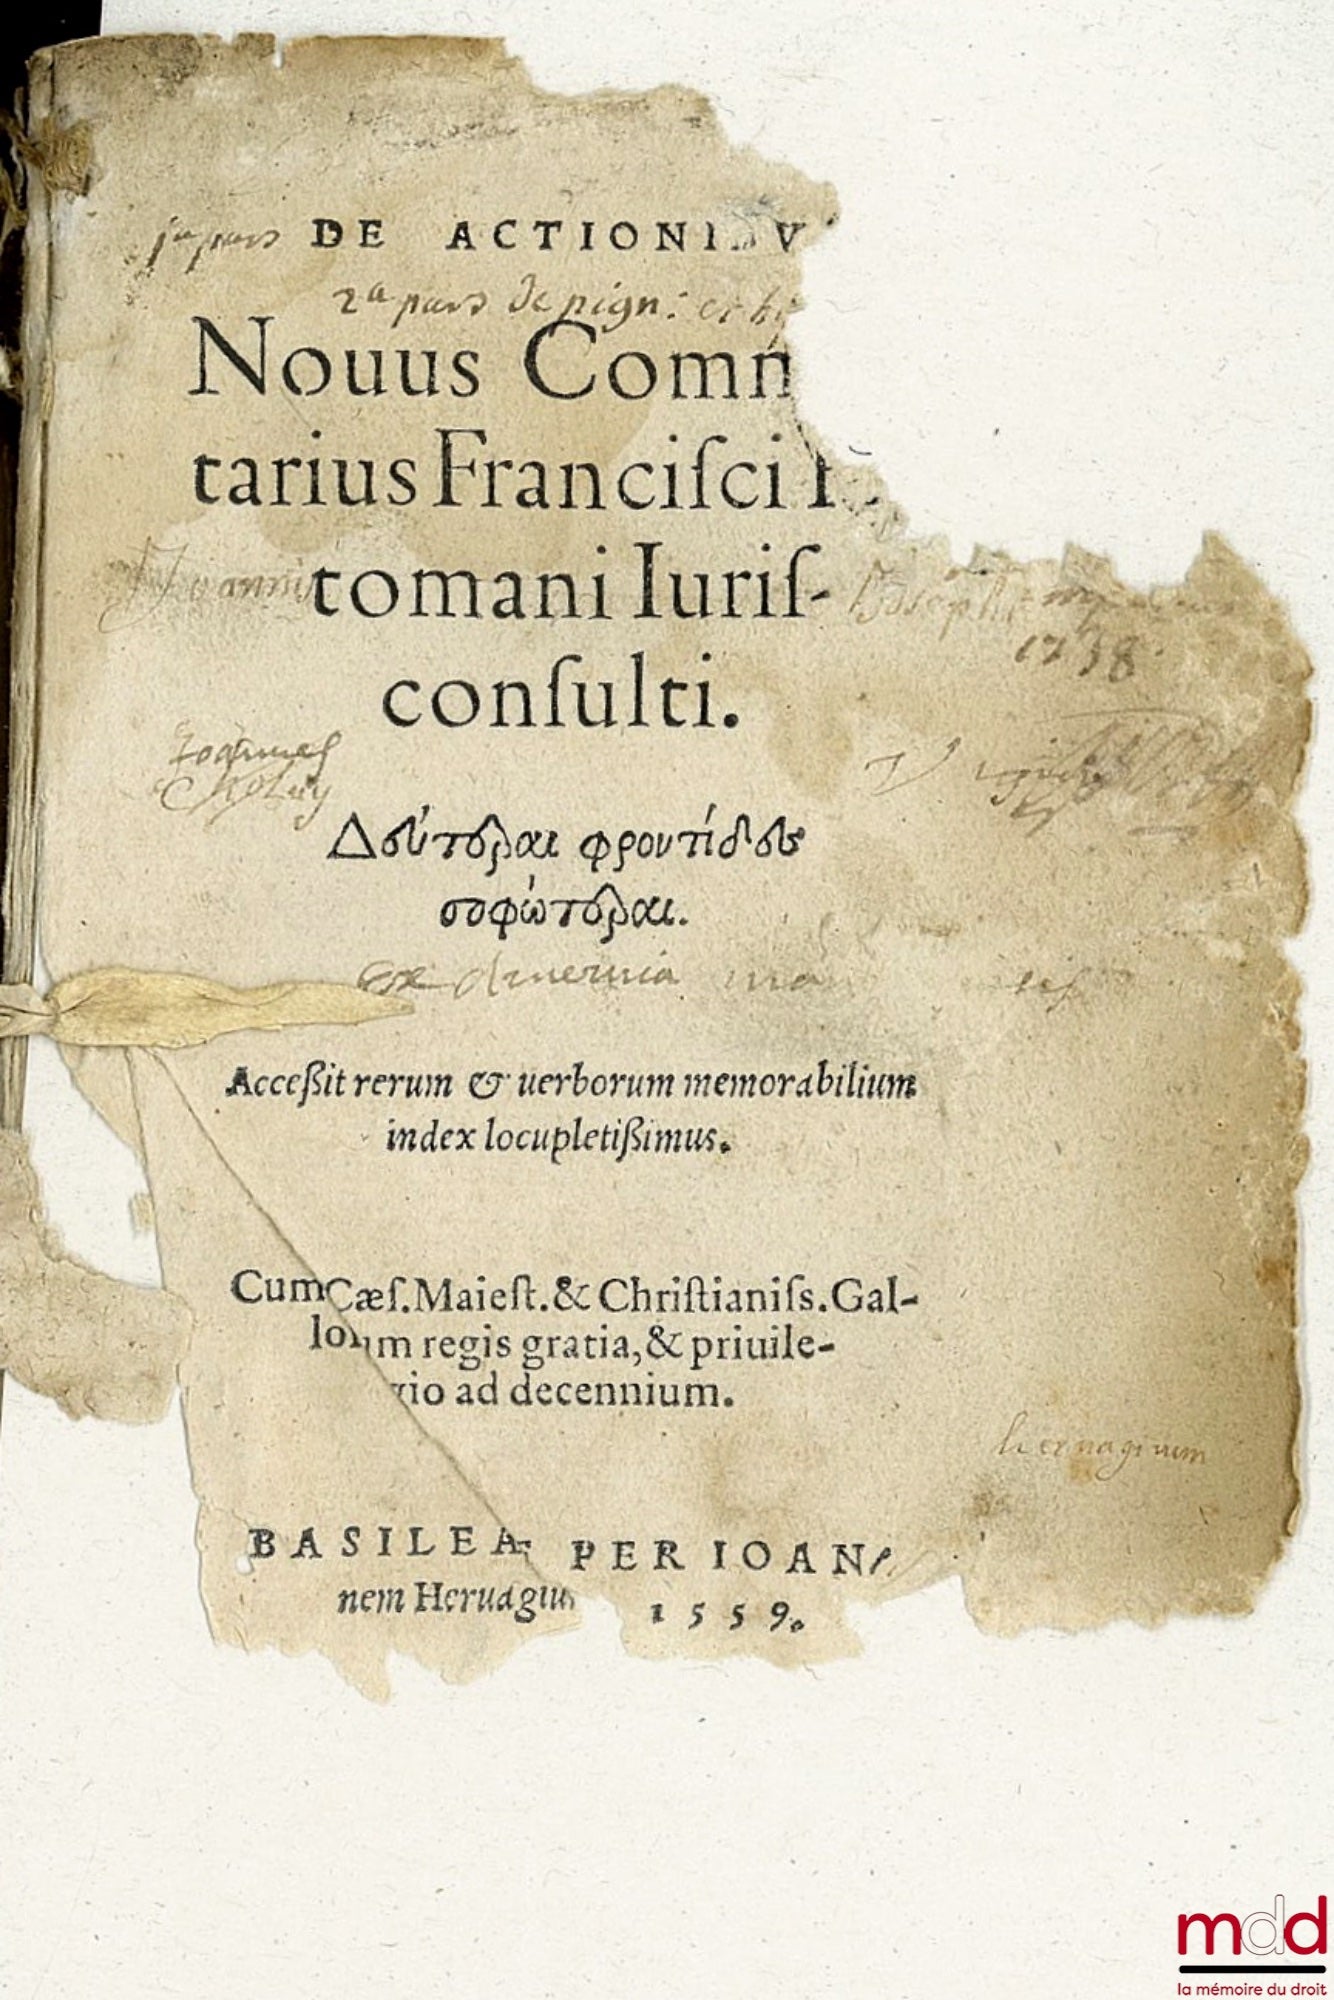 DE ACTIONIBV
2a pars de pign: et hy
Nouus Comm
tarius Franciſci
Joannis
tomani Iuriſ-
1738
conſulti.
Joannes
Δεύτεραι φροντίδες
σοφώτεραι.
Ex
Acceßit rerum & uerborum memorabilium
index locupletißimus.
Cum Cæſ. Maieſt. & Chriſtianiſs. Gal-
lorum regis gratia, & priuile-
gio ad decennium.
hernagium
BASILEÆ PER IOAN
nem Heruagiu 1559.
mdd
la mémoire du droit